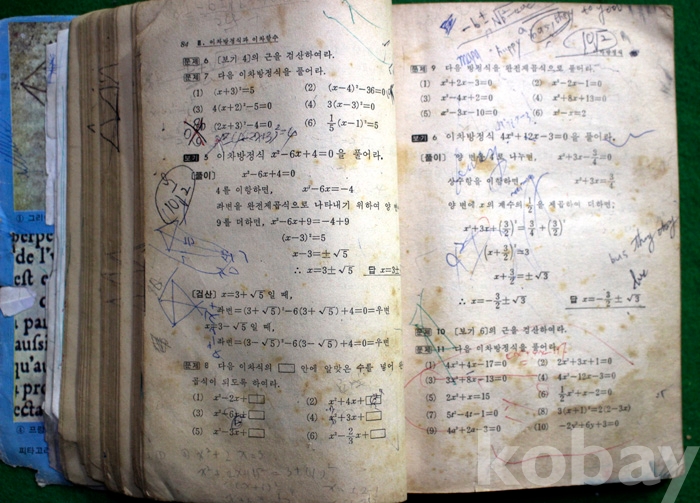 84 Ⅲ. 이차방정식과 이차함수
문제 6 [보기 4]의 근을 검산하여라.
문제 7 다음 이차방정식을 풀어라.
(1) (x+3)²=5 (2) (x-4)²-36=0
(3) 4(x+2)²-5=0 (4) 3(x-3)²=0
(2x+3)²-4=0 (6) 1/5(x-1)²=5
보기 5 이차방정식 x²-6x+4=0을 풀어라.
[풀이] x²-6x+4=0
4를 이항하면, x²-6x=-4
좌변을 완전제곱식으로 나타내기 위하여 양변
9를 더하면, x²-6x+9=-4+9
(x-3)²=5
x-3=±√5
∴ x=3±√5 답 x=3±
[검산] x=3+√5 일 때,
좌변=(3+√5)²-6(3+√5)+4=0=우변
x=3-√5 일 때,
좌변=(3-√5)²-6(3-√5)+4=0=우변
문제 8 다음 이차식의 □ 안에 알맞은 수를 넣어 완
곱식이 되도록 하여라.
(1) x²-2x+□ (2) x²+4x+□
(3) x²+6x+□ (4) x²+3x+□
(5) x²-3x+□ (6) x²-2/3x+□
문제 9 다음 방정식을 완전제곱식으로 풀어라.
(1) x²+2x-3=0 (2) x²-2x-1=0
(3) x²-4x+2=0 (4) x²+8x+13=0
(5) x²-3x-10=0 (6) x²-x=2
보기 6 이차방정식 4x²+12x-3=0을 풀어라.
[풀이] 양 변을 4로 나누면, x²+3x-3/4=0
상수항을 이항하면, x²+3x=3/4
양 변에 x의 계수의 1/2을 제곱하여 더하면,
x²+3x+(3/2)²=3/4+(3/2)²
(x+3/2)²=3
x+3/2=±√3
∴ x=-3/2±√3 답 x=-3/2±√3
문제 10 [보기 6]의 근을 검산하여라.
문제 11 다음 이차방정식을 풀어라.
(1) x²+4x-17=0 (2) 2x²+3x+1=0
(3) 3x²+8x-13=0 (4) 4x²-12x-3=0
(5) 2x²+x=15 (6) 1/2x²+x-2=0
(7) 5x²-4x-1=0 (8) 3(x+1)²=2(2-3x)
(9) 4x²+2x-3=0 (10) -2x²+6x+3=0
bus they day
perpe
de l'e
est e
a par
aussi
qu'au
a pre
ecta
피타고
kobay